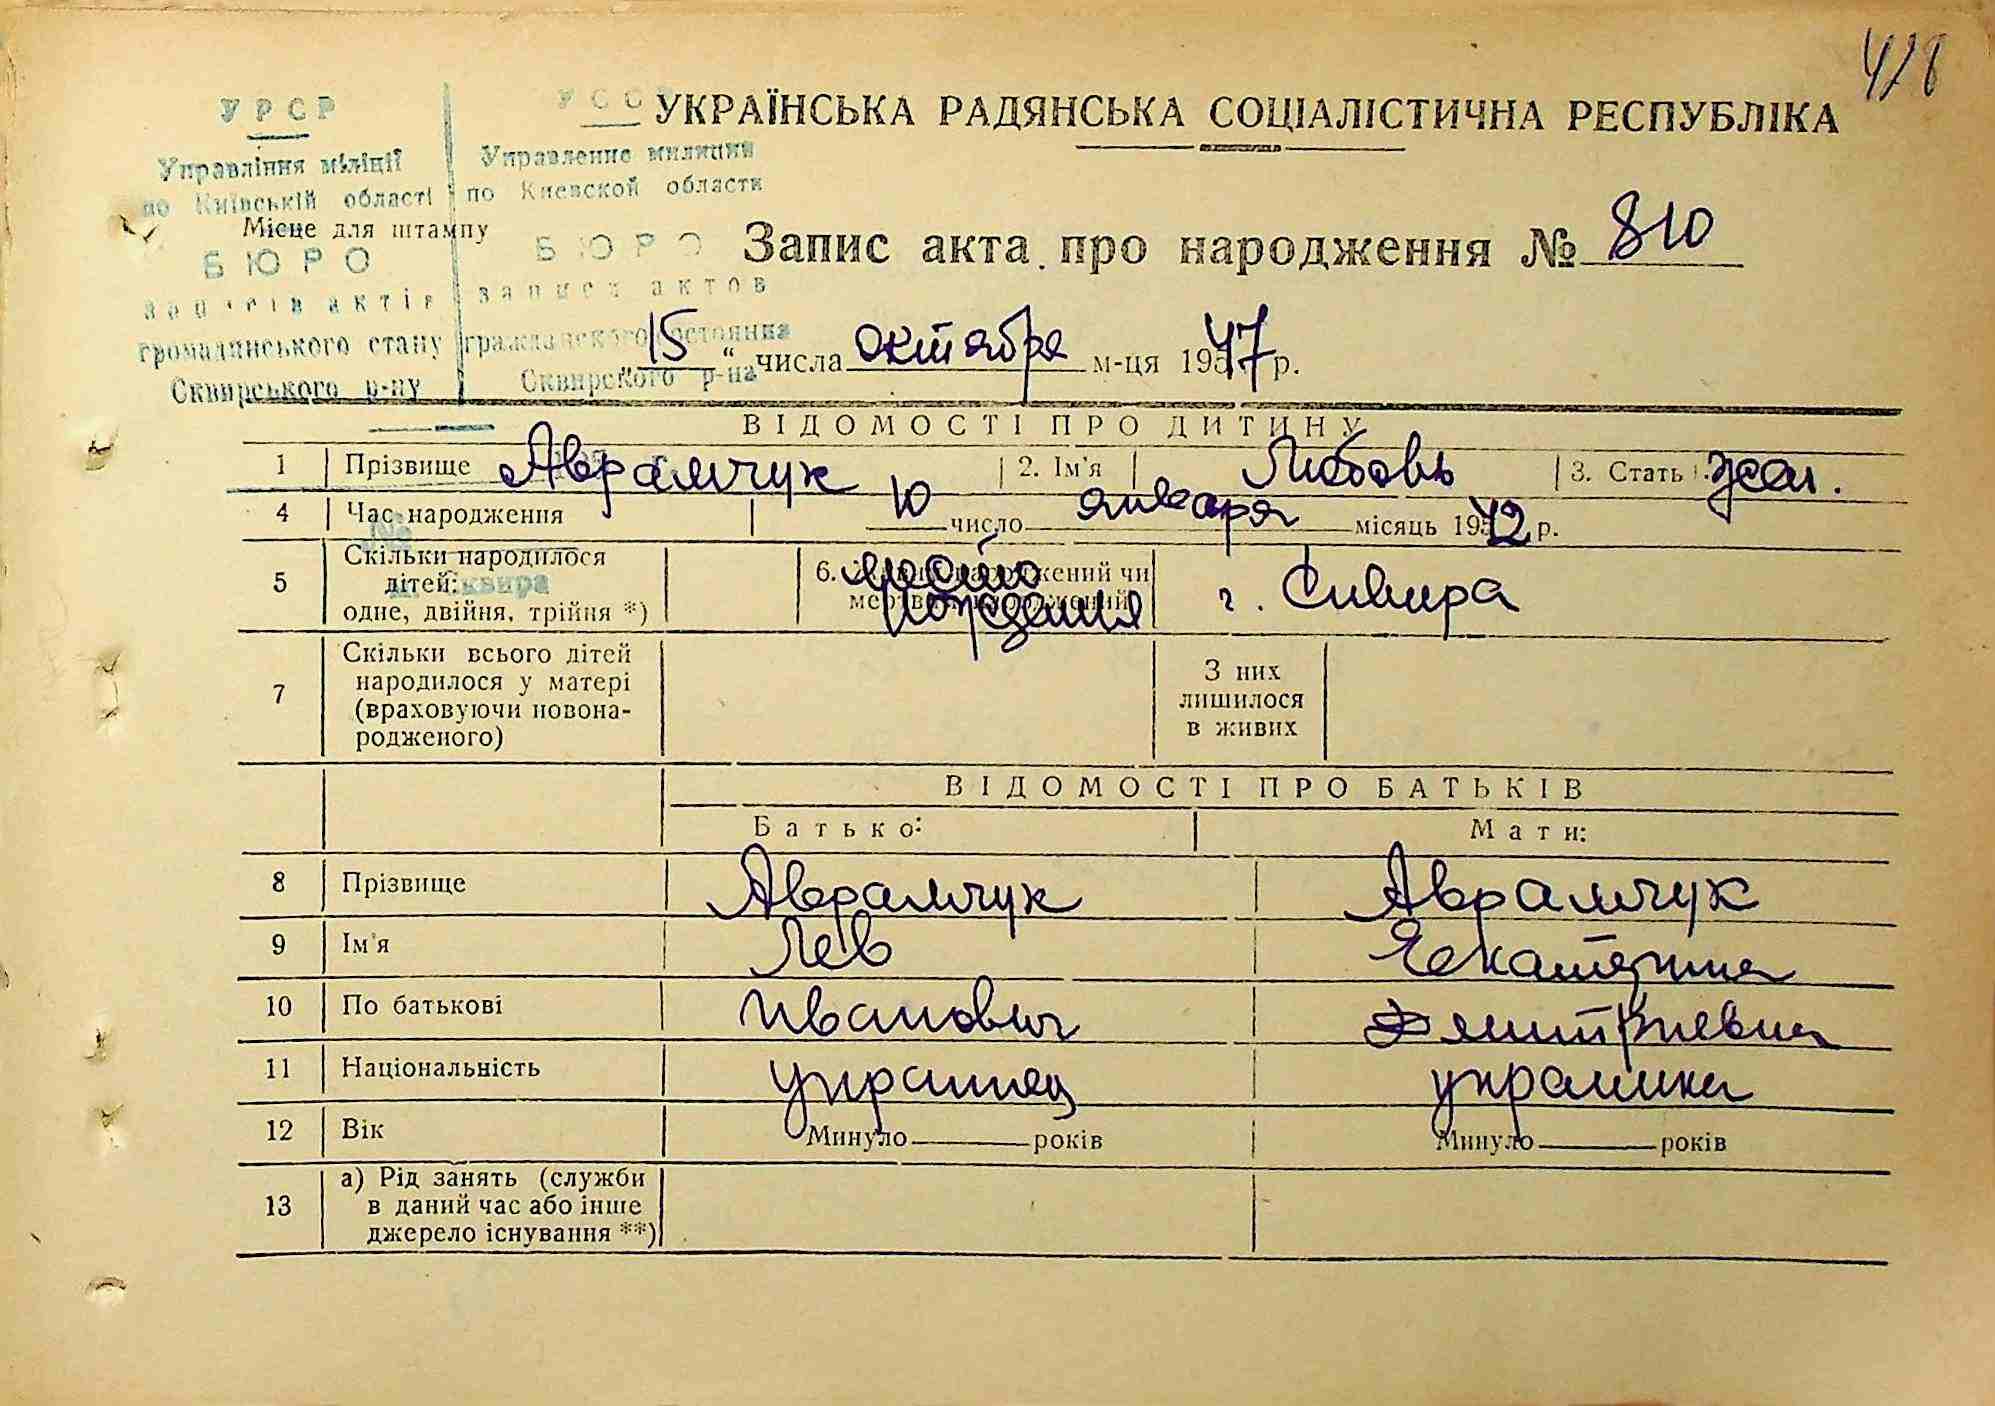 428
УРСР
Управління міліції
по Київській області
Місце для штампу
БЮРО
записів актів
громадянського стану
Сквирського р-ну
УССР
Управление милиции
по Киевской области
БЮРО
записи актов
гражданского состояния
Сквирского р-на
УКРАЇНСЬКА РАДЯНСЬКА СОЦІАЛІСТИЧНА РЕСПУБЛІКА
Запис акта про народження № 810
„15“ числа октября м-ця 1947 р.
ВІДОМОСТІ ПРО ДИТИНУ
1 Прізвище Аврамчук 2. Ім'я Любовь 3. Стать жен.
4 Час народження 10 число января місяць 1942 р.
№
м. Сквира
5 Скільки народилося
дітей:
одне, двійня, трійня *)
6. Живим народжений чи
мертвим народжений
место
рождения
г. Сквира
7 Скільки всього дітей
народилося у матері
(враховуючи новона-
родженого)
З них
лишилося
в живих
ВІДОМОСТІ ПРО БАТЬКІВ
Батько: Мати:
8 Прізвище Аврамчук Аврамчук
9 Ім'я Лев Екатерина
10 По батькові Иванович Дмитриевна
11 Національність украинец украинка
12 Вік Минуло років Минуло років
13 а) Рід занять (служби
в даний час або інше
джерело існування **)